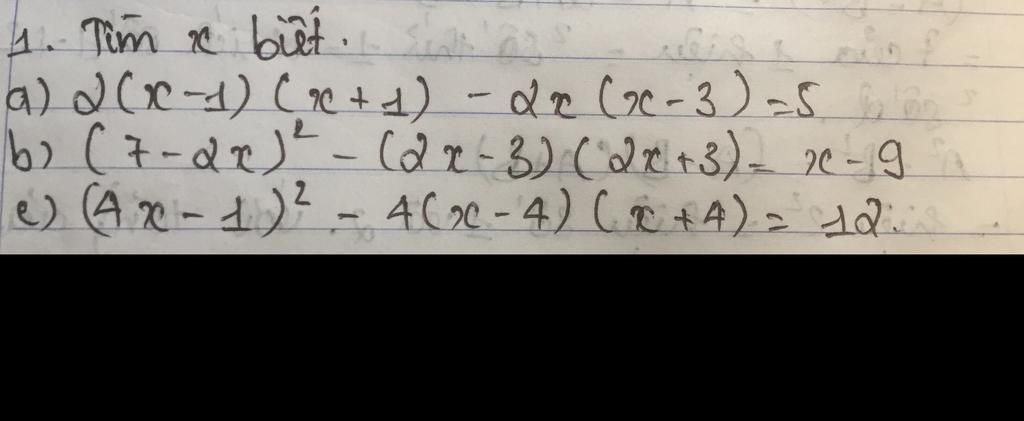 1. Tìm x biết.
a) 2(x-1)(x+1) - 2x(x-3)=5
b) (7-2x)² - (2x-3)(2x+3)= x-9
c) (4x-1)² - 4(x-4)(x+4)= 12.